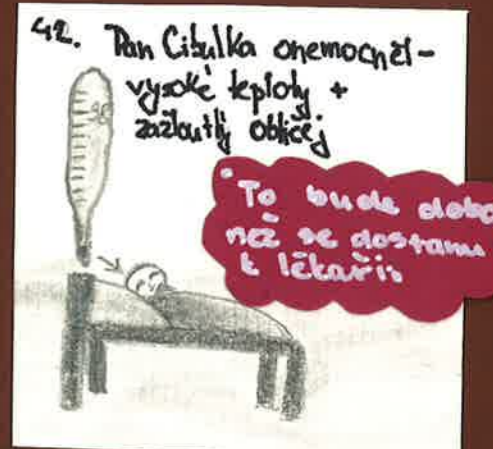 42. Pan Cibulka onemocněl -
vysoké teploty +
zažloutlý obličej
To bude doba
než se dostanu
k lékaři.